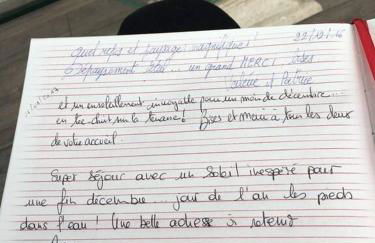 Quel repos et paysages magnifiques!
22/12/16
Dépaysement total... un grand MERCI. Bises
Valérie et Patrice
et un ensoleillement incroyable pour un mois de décembre...
en tee-shirt sur la terrasse! Bises et merci à tous les deux
de votre accueil.
Super séjour avec un soleil inespéré pour
une fin décembre... jour de l'an les pieds
dans l'eau! Une belle adresse à retenir